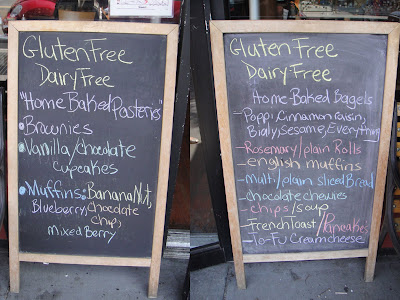 Gluten Free
Dairy Free
"Home Baked Pasteries"
•Brownies
•Vanilla/chocolate
cupcakes
•Muffins: Banana Nut,
Blueberry, Chocolate
Chip,
Mixed Berry
Gluten Free
Dairy Free
Home-Baked Bagels
-Poppi, Cinnamon raisin,
Bialy, Sesame, Everything
-Rosemary/plain Rolls
-english muffins
-Multi/plain sliced Bread
-chocolate chewies
-chips/soup
-French Toast/Pancakes
-To-Fu Cream cheese